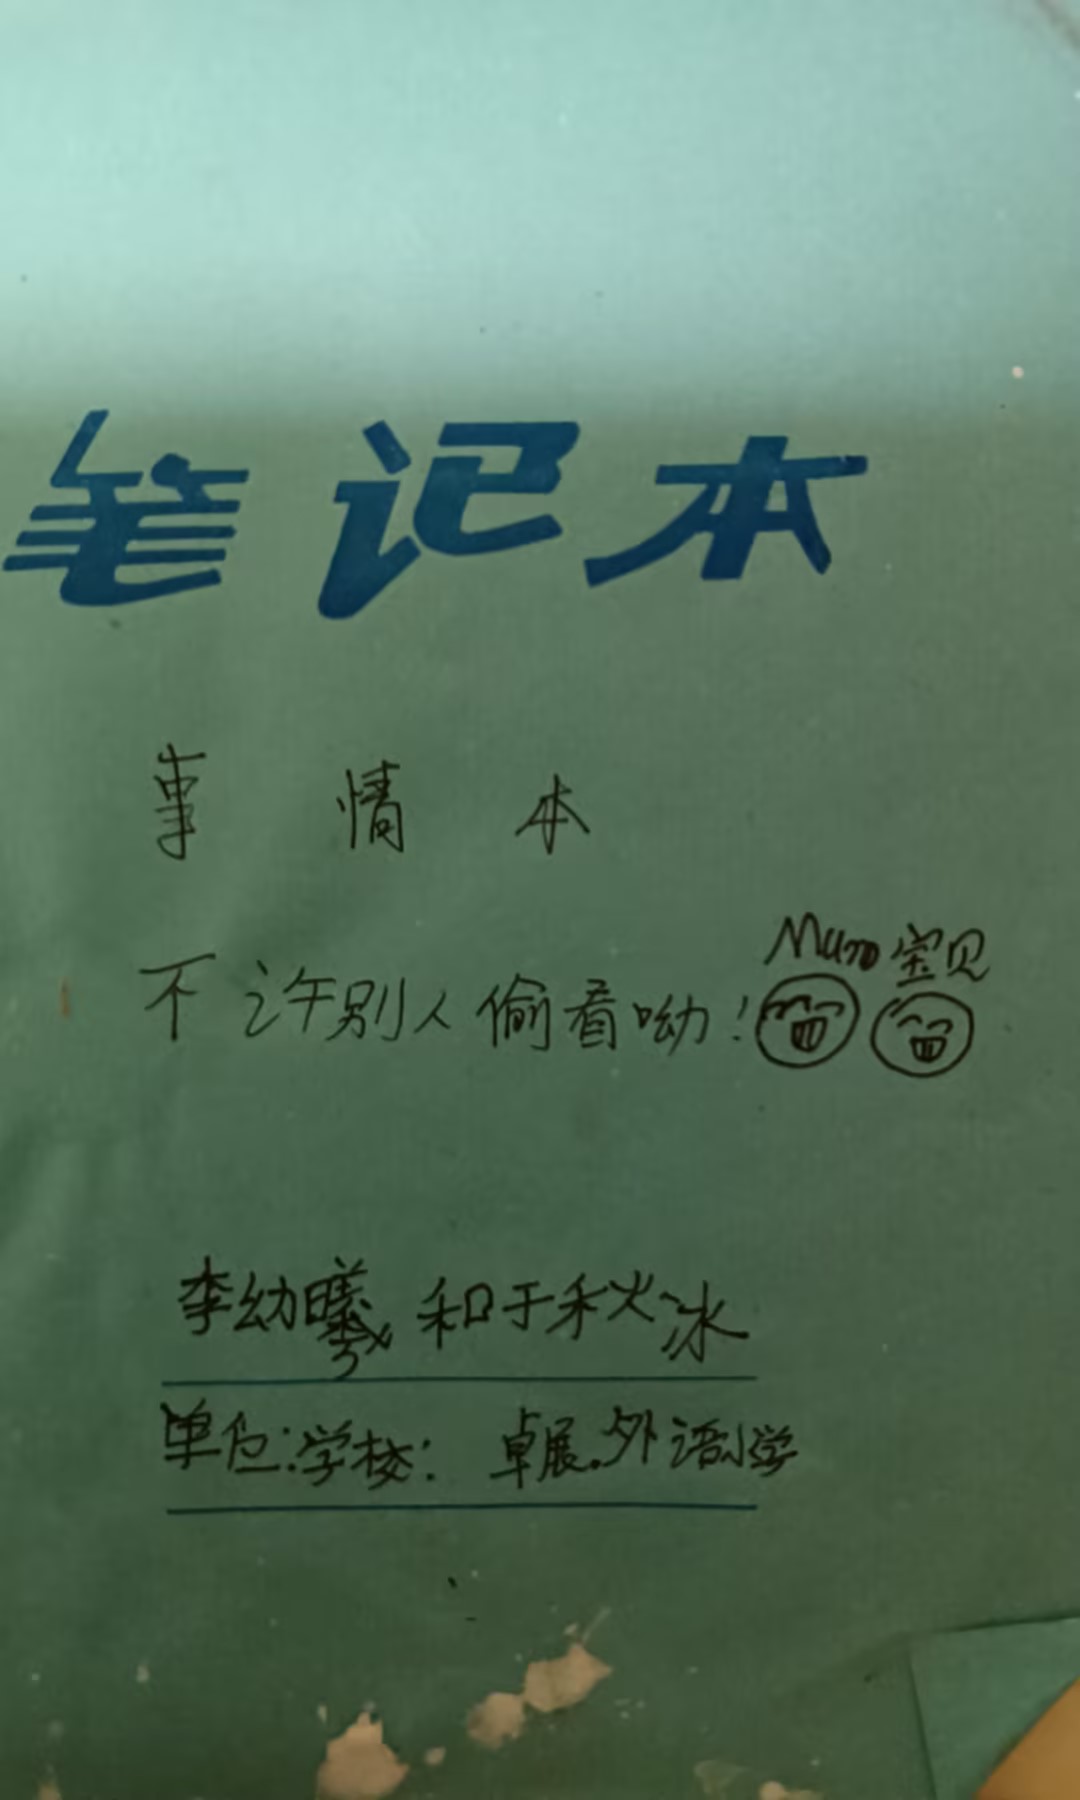 笔记本
事情本
宝贝
不许别人偷看呦!
李幼曦和于秋冰
单位:学校:卓展外语小学